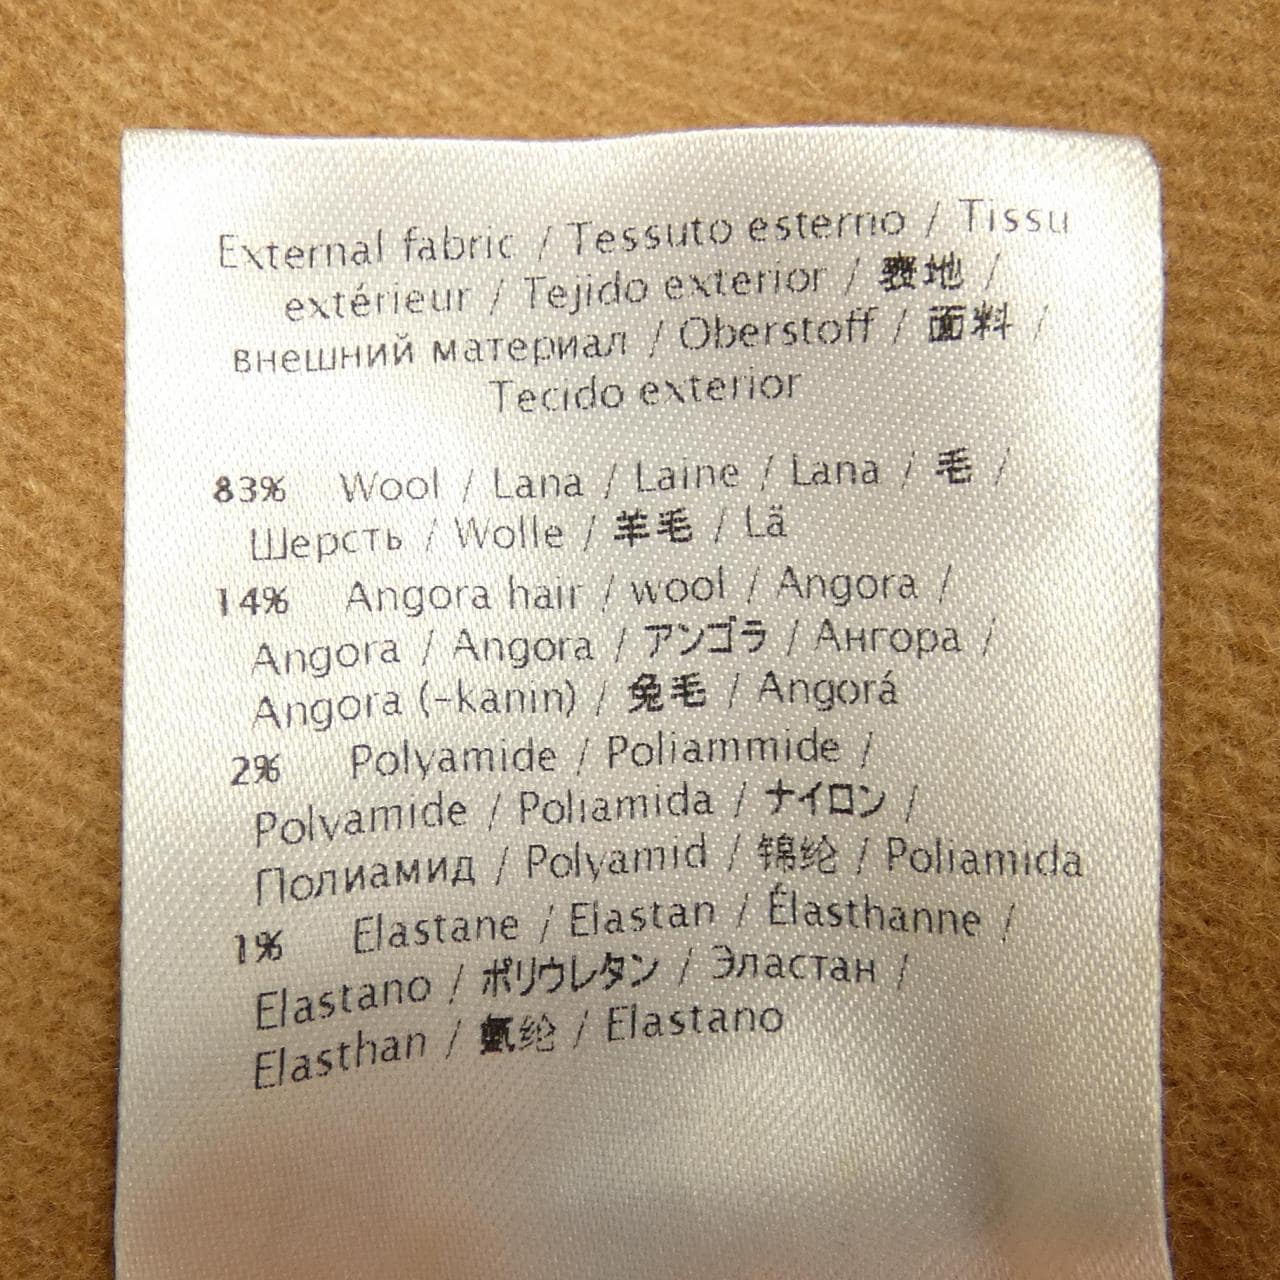 External fabric / Tessuto esterno / Tissu
extérieur / Tejido exterior / 表地 /
внешний материал / Oberstoff / 面料 /
Tecido exterior
83% Wool / Lana / Laine / Lana / 毛 /
Шерсть / Wolle / 羊毛 / Lä
14% Angora hair / wool / Angora /
Angora / Angora / アンゴラ / Ангора /
Angora (-kanin) / 兔毛 / Angorá
2% Polyamide / Poliammide /
Polyamide / Poliamida / ナイロン /
Полиамид / Polyamid / 锦纶 / Poliamida
1% Elastane / Elastan / Élasthanne /
Elastano / ポリウレタン / Эластан /
Elasthan / 氨纶 / Elastano